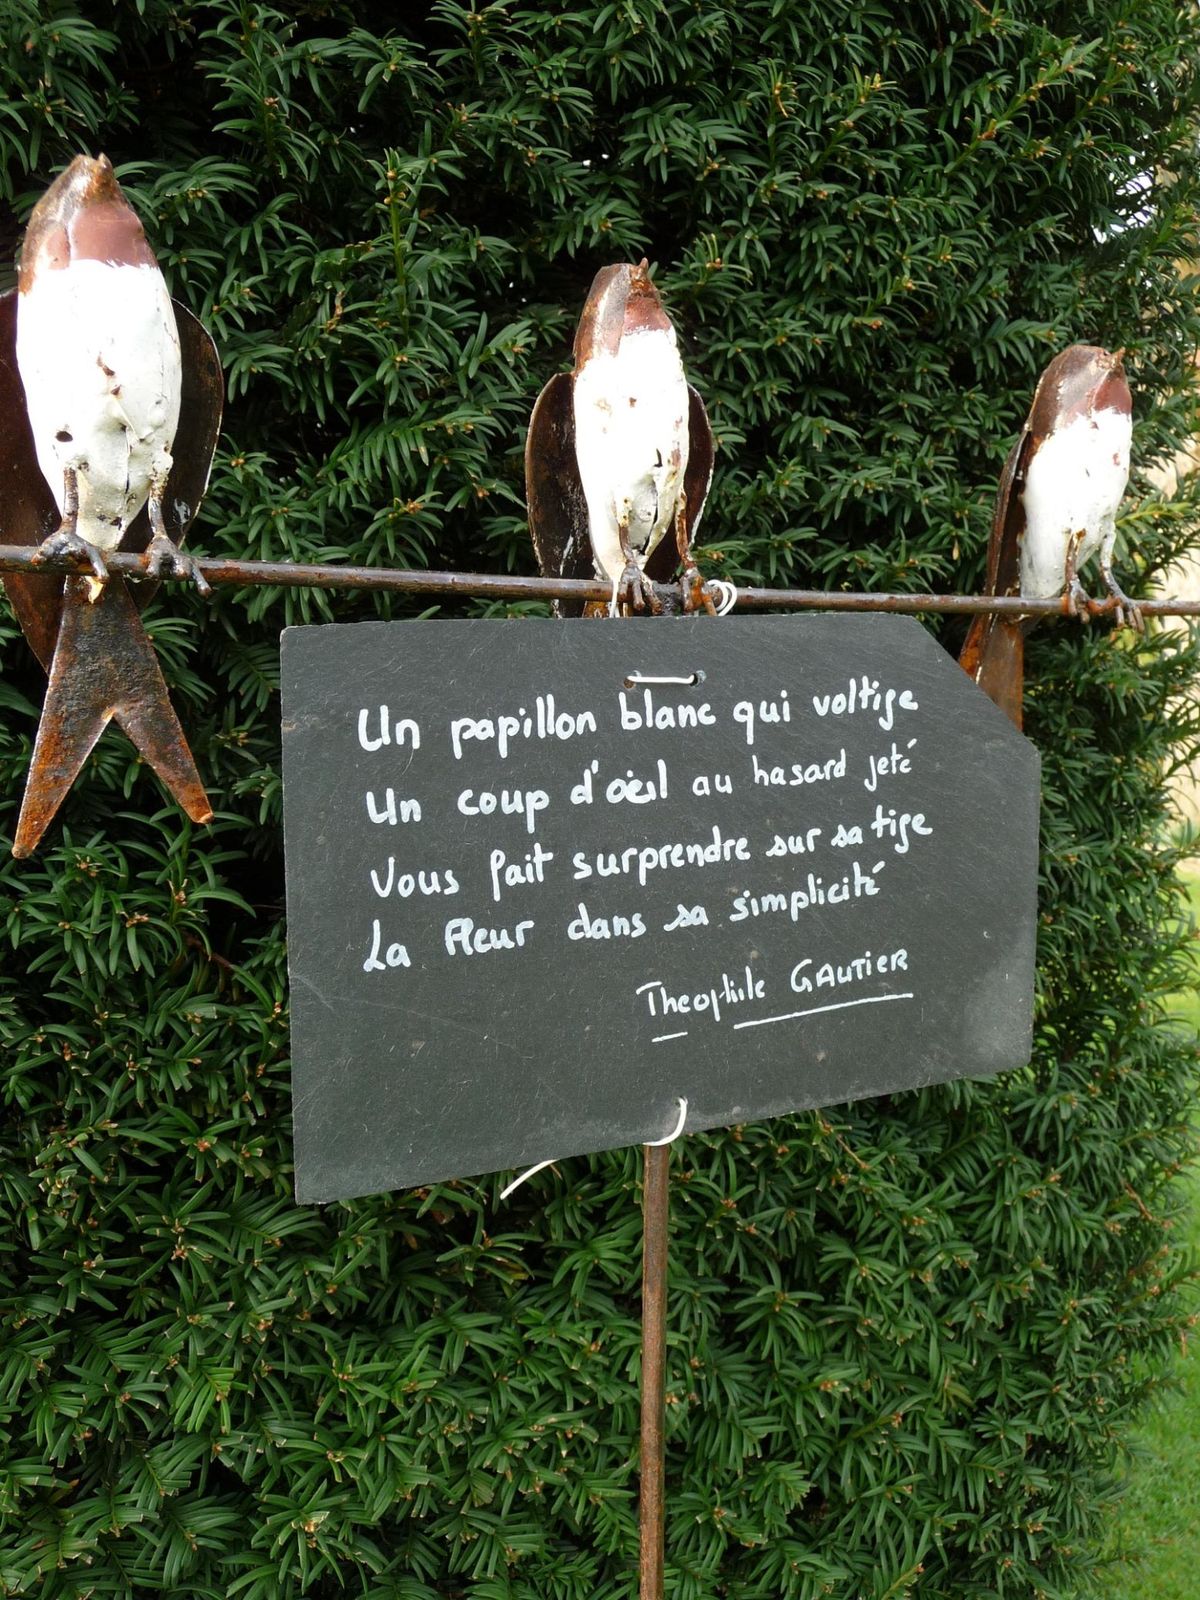 Un papillon blanc qui voltige
Un coup d'oeil au hasard jeté
Vous fait surprendre sur sa tige
La fleur dans sa simplicité
Theophile GAUTIER